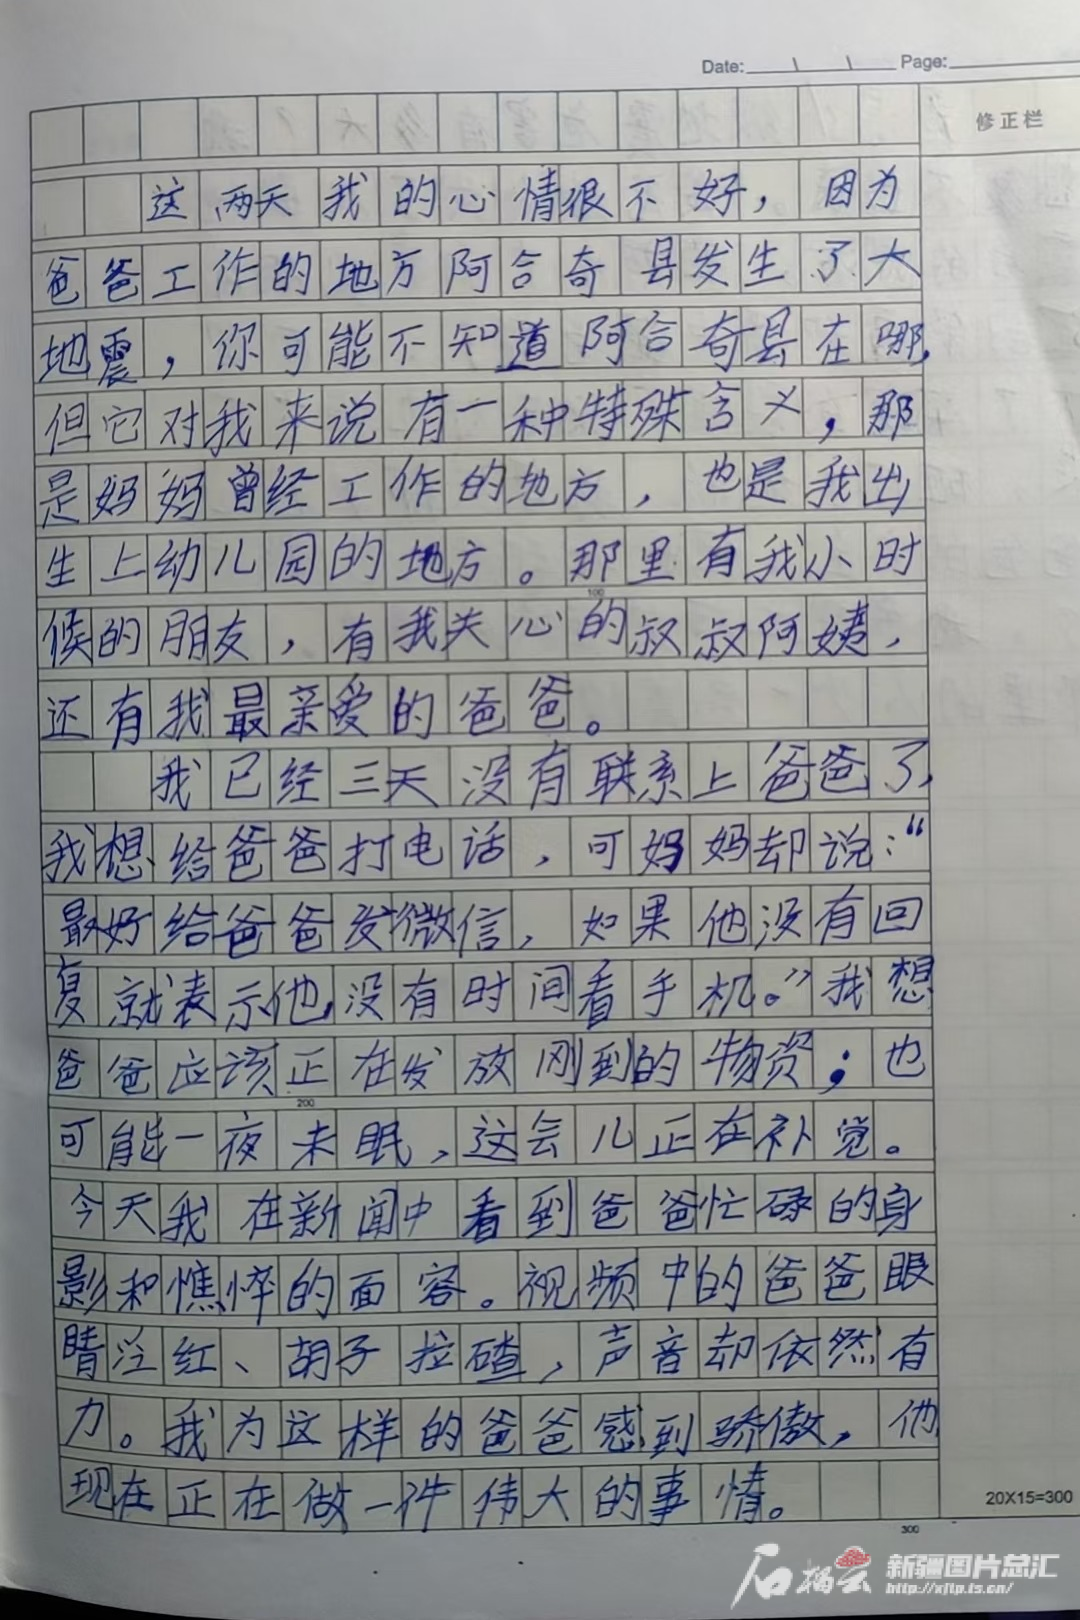 Date: \ \ Page:
修正栏
这两天我的心情很不好，因为
爸爸工作的地方阿合奇县发生了大
地震，你可能不知道阿合奇县在哪，
但它对我来说有一种特殊含义，那
是妈妈曾经工作的地方，也是我出
生上幼儿园的地方。那里有我小时
100
候的朋友，有我关心的叔叔阿姨，
还有我最亲爱的爸爸。
我已经三天没有联系上爸爸了，
我想给爸爸打电话，可妈妈却说：“
最好给爸爸发微信，如果他没有回
复就表示他没有时间看手机。”我想
爸爸应该正在发放刚到的物资；也
200
可能一夜未眠，这会儿正在补觉。
今天我在新闻中看到爸爸忙碌的身
影和憔悴的面容。视频中的爸爸眼
睛泛红、胡子拉碴，声音却依然有
力。我为这样的爸爸感到骄傲，他
现在正在做一件伟大的事情。
20X15=300
300
石榴云 新疆图片总汇
http://xjtp.ts.cn/